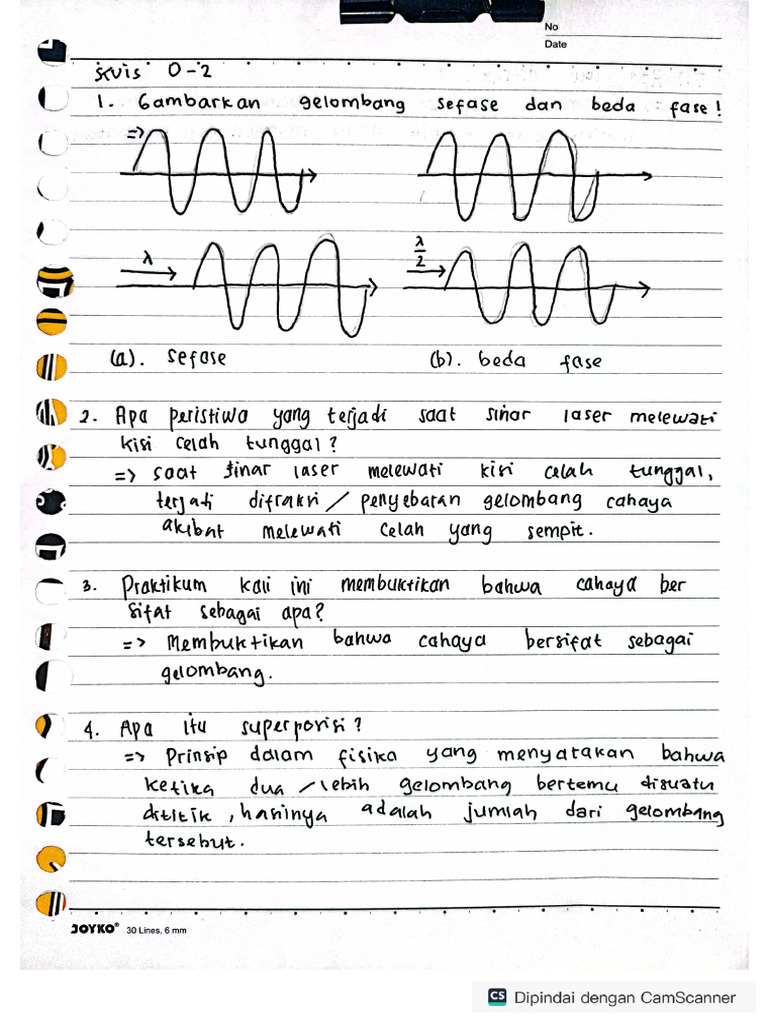 No
Date
skuis O-2
1. Gambarkan gelombang sefase dan beda fase!
=>
λ
λ/2
(a). sefase (b). beda fase
2. Apa peristiwa yang terjadi saat sinar laser melewati
kisi celah tunggal?
=> saat sinar laser melewati kisi celah tunggal,
terjadi difraksi / penyebaran gelombang cahaya
akibat melewati celah yang sempit.
3. Praktikum kali ini membuktikan bahwa cahaya ber
sifat sebagai apa?
=> Membuktikan bahwa cahaya bersifat sebagai
gelombang.
4. Apa itu superposisi?
=> Prinsip dalam fisika yang menyatakan bahwa
ketika dua /lebih gelombang bertemu disuatu
dititik, hasinya adalah jumlah dari gelombang
tersebut.
JOYKO® 30 Lines, 6 mm
CS Dipindai dengan CamScanner